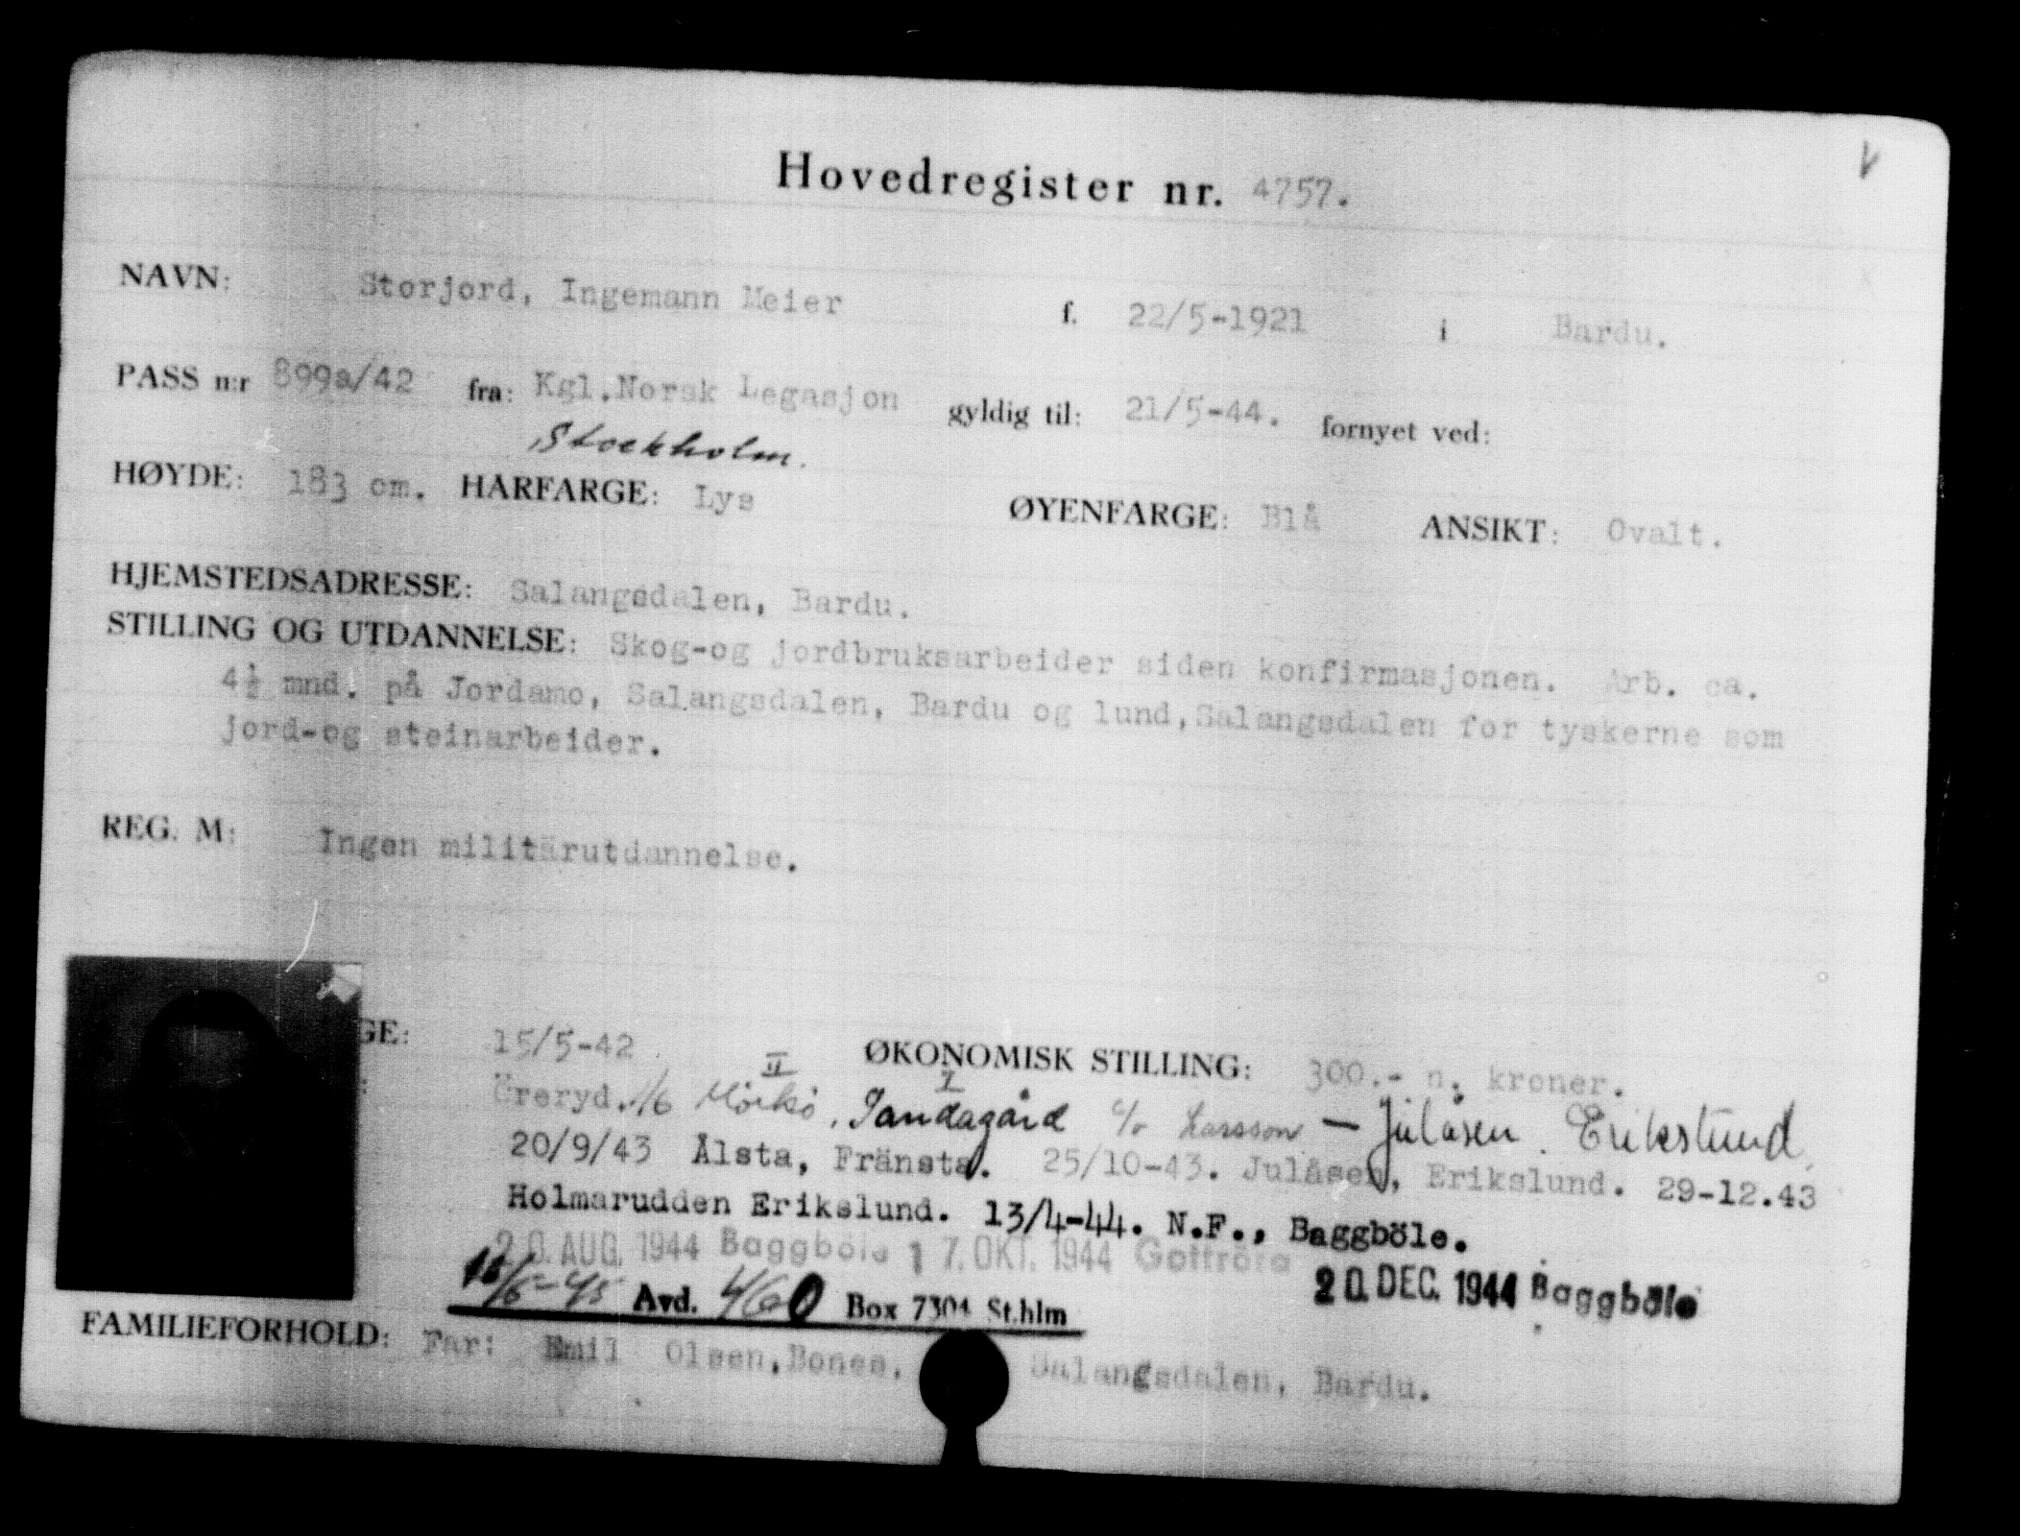 Hovedregister nr. 4757.
NAVN: Storjord, Ingemann Meier f. 22/5-1921 i Bardu.
PASS n:r 899a/42 fra: Kgl.Norsk Legasjon gyldig til: 21/5-44. fornyet ved:
Stockholm.
HØYDE: 183 cm. HÅRFARGE: Lys ØYENFARGE: Blå ANSIKT: Ovalt.
HJEMSTEDSADRESSE: Salangsdalen, Bardu.
STILLING OG UTDANNELSE: Skog-og jordbruksarbeider siden konfirmasjonen. Arb. ca.
4½ mnd. på Jordamo, Salangsdalen, Bardu og lund,Salangsdalen for tyskerne som
jord-og steinarbeider.
REG. M: Ingen militärutdannelse.
GE: 15/5-42 ØKONOMISK STILLING: 300.- n. kroner.
II I
: Öreryd. Mörkö, Sandagård c/o Larsson — Julåsen. Erikslund.
20/9/43 Ålsta, Fränsta. 25/10-43. Julåsen, Erikslund. 29-12.43
Holmarudden Erikslund. 13/4-44. N.F., Baggböle.
20. AUG. 1944 Baggböle 17. OKT. 1944 Gottröra 20. DEC. 1944 Baggböle
11/6-45 Avd. 460 Box 7304 St.hlm
FAMILIEFORHOLD: Far: Emil Olsen,Bones, Salangsdalen, Bardu.